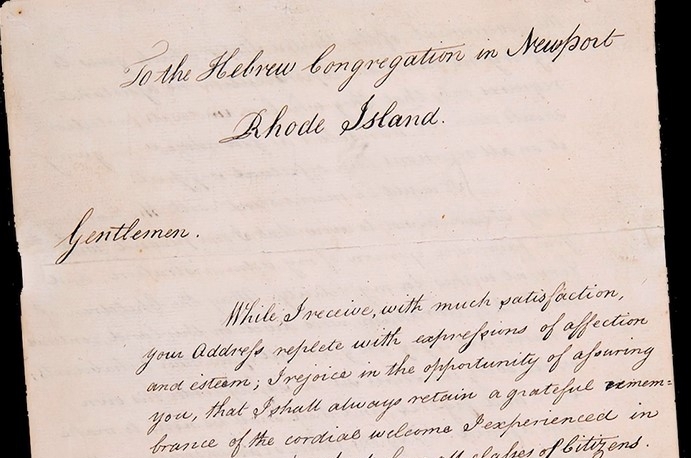 To the Hebrew Congregation in Newport
Rhode Island.
Gentlemen.
While, I receive, with much satisfaction,
your Address replete with expressions of affection
and esteem; I rejoice in the opportunity of assuring
you, that I shall always retain a grateful remem=
brance of the cordial welcome I experienced in
all classes of Citizens.